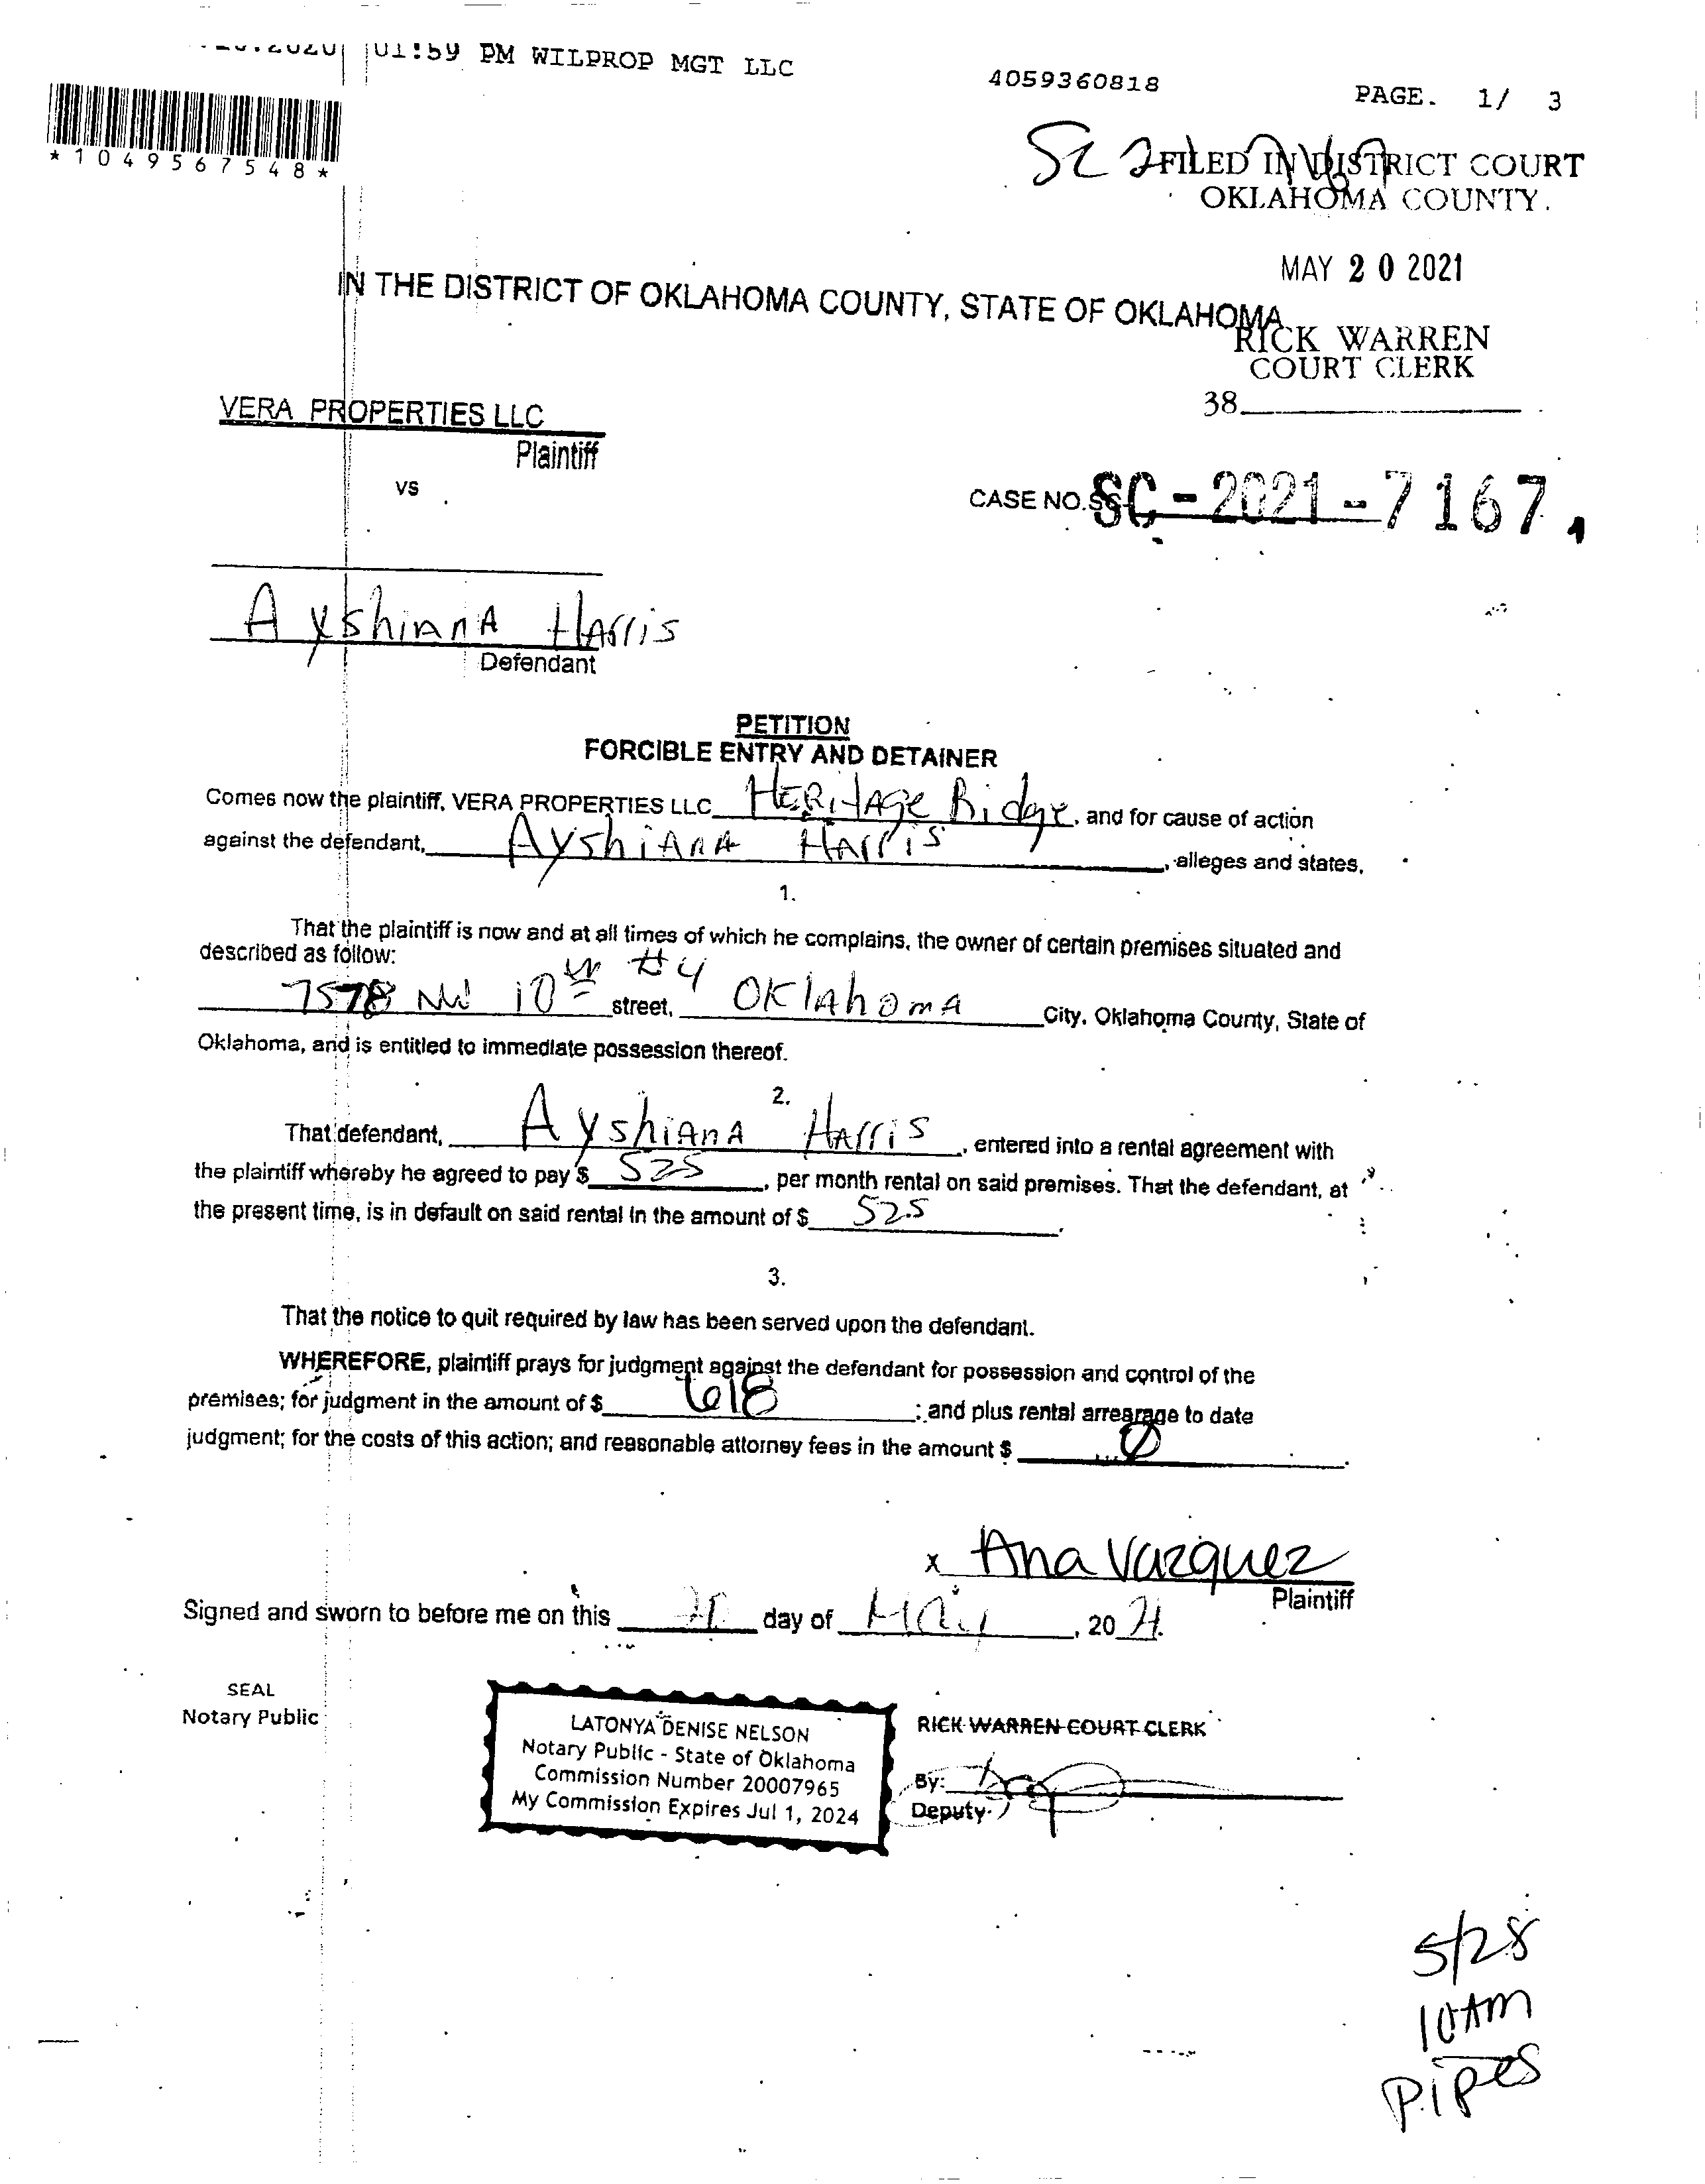 01:59 PM WILPROP MGT LLC 4059360818 PAGE. 1/ 3
*1049567548*
SC
FILED IN DISTRICT COURT
OKLAHOMA COUNTY.
MAY 20 2021
IN THE DISTRICT OF OKLAHOMA COUNTY, STATE OF OKLAHOMA
RICK WARREN
COURT CLERK
38
VERA PROPERTIES LLC
Plaintiff
vs
CASE NO. SC-2021-7167
Ayshiana Harris
Defendant
PETITION
FORCIBLE ENTRY AND DETAINER
Comes now the plaintiff, VERA PROPERTIES LLC Heritage Ridge, and for cause of action
against the defendant, Ayshiana Harris, alleges and states,
1.
That the plaintiff is now and at all times of which he complains, the owner of certain premises situated and
described as follow:
7578 NW 10th #4 street, Oklahoma City, Oklahoma County, State of
Oklahoma, and is entitled to immediate possession thereof.
2.
That defendant, Ayshiana Harris, entered into a rental agreement with
the plaintiff whereby he agreed to pay $ 525, per month rental on said premises. That the defendant, at
the present time, is in default on said rental in the amount of $ 525.
3.
That the notice to quit required by law has been served upon the defendant.
WHEREFORE, plaintiff prays for judgment against the defendant for possession and control of the
premises; for judgment in the amount of $ 618; and plus rental arrearage to date
judgment; for the costs of this action; and reasonable attorney fees in the amount $ Ø.
x Ana Vazquez
Plaintiff
Signed and sworn to before me on this day of May, 2021.
SEAL
Notary Public
LATONYA DENISE NELSON
Notary Public - State of Oklahoma
Commission Number 20007965
My Commission Expires Jul 1, 2024
RICK WARREN COURT CLERK
By:
Deputy
5/28
10AM
Pipes